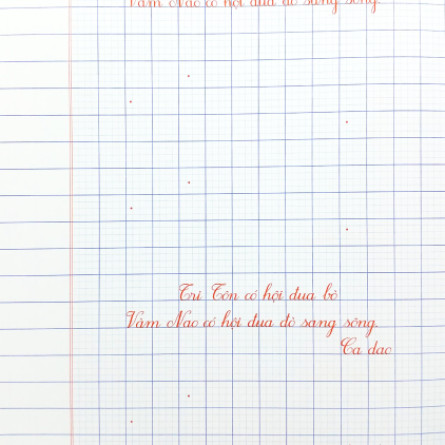 Vàm Nao có hội đua đò sang sông.
Tri Tôn có hội đua bò
Vàm Nao có hội đua đò sang sông.
Ca dao